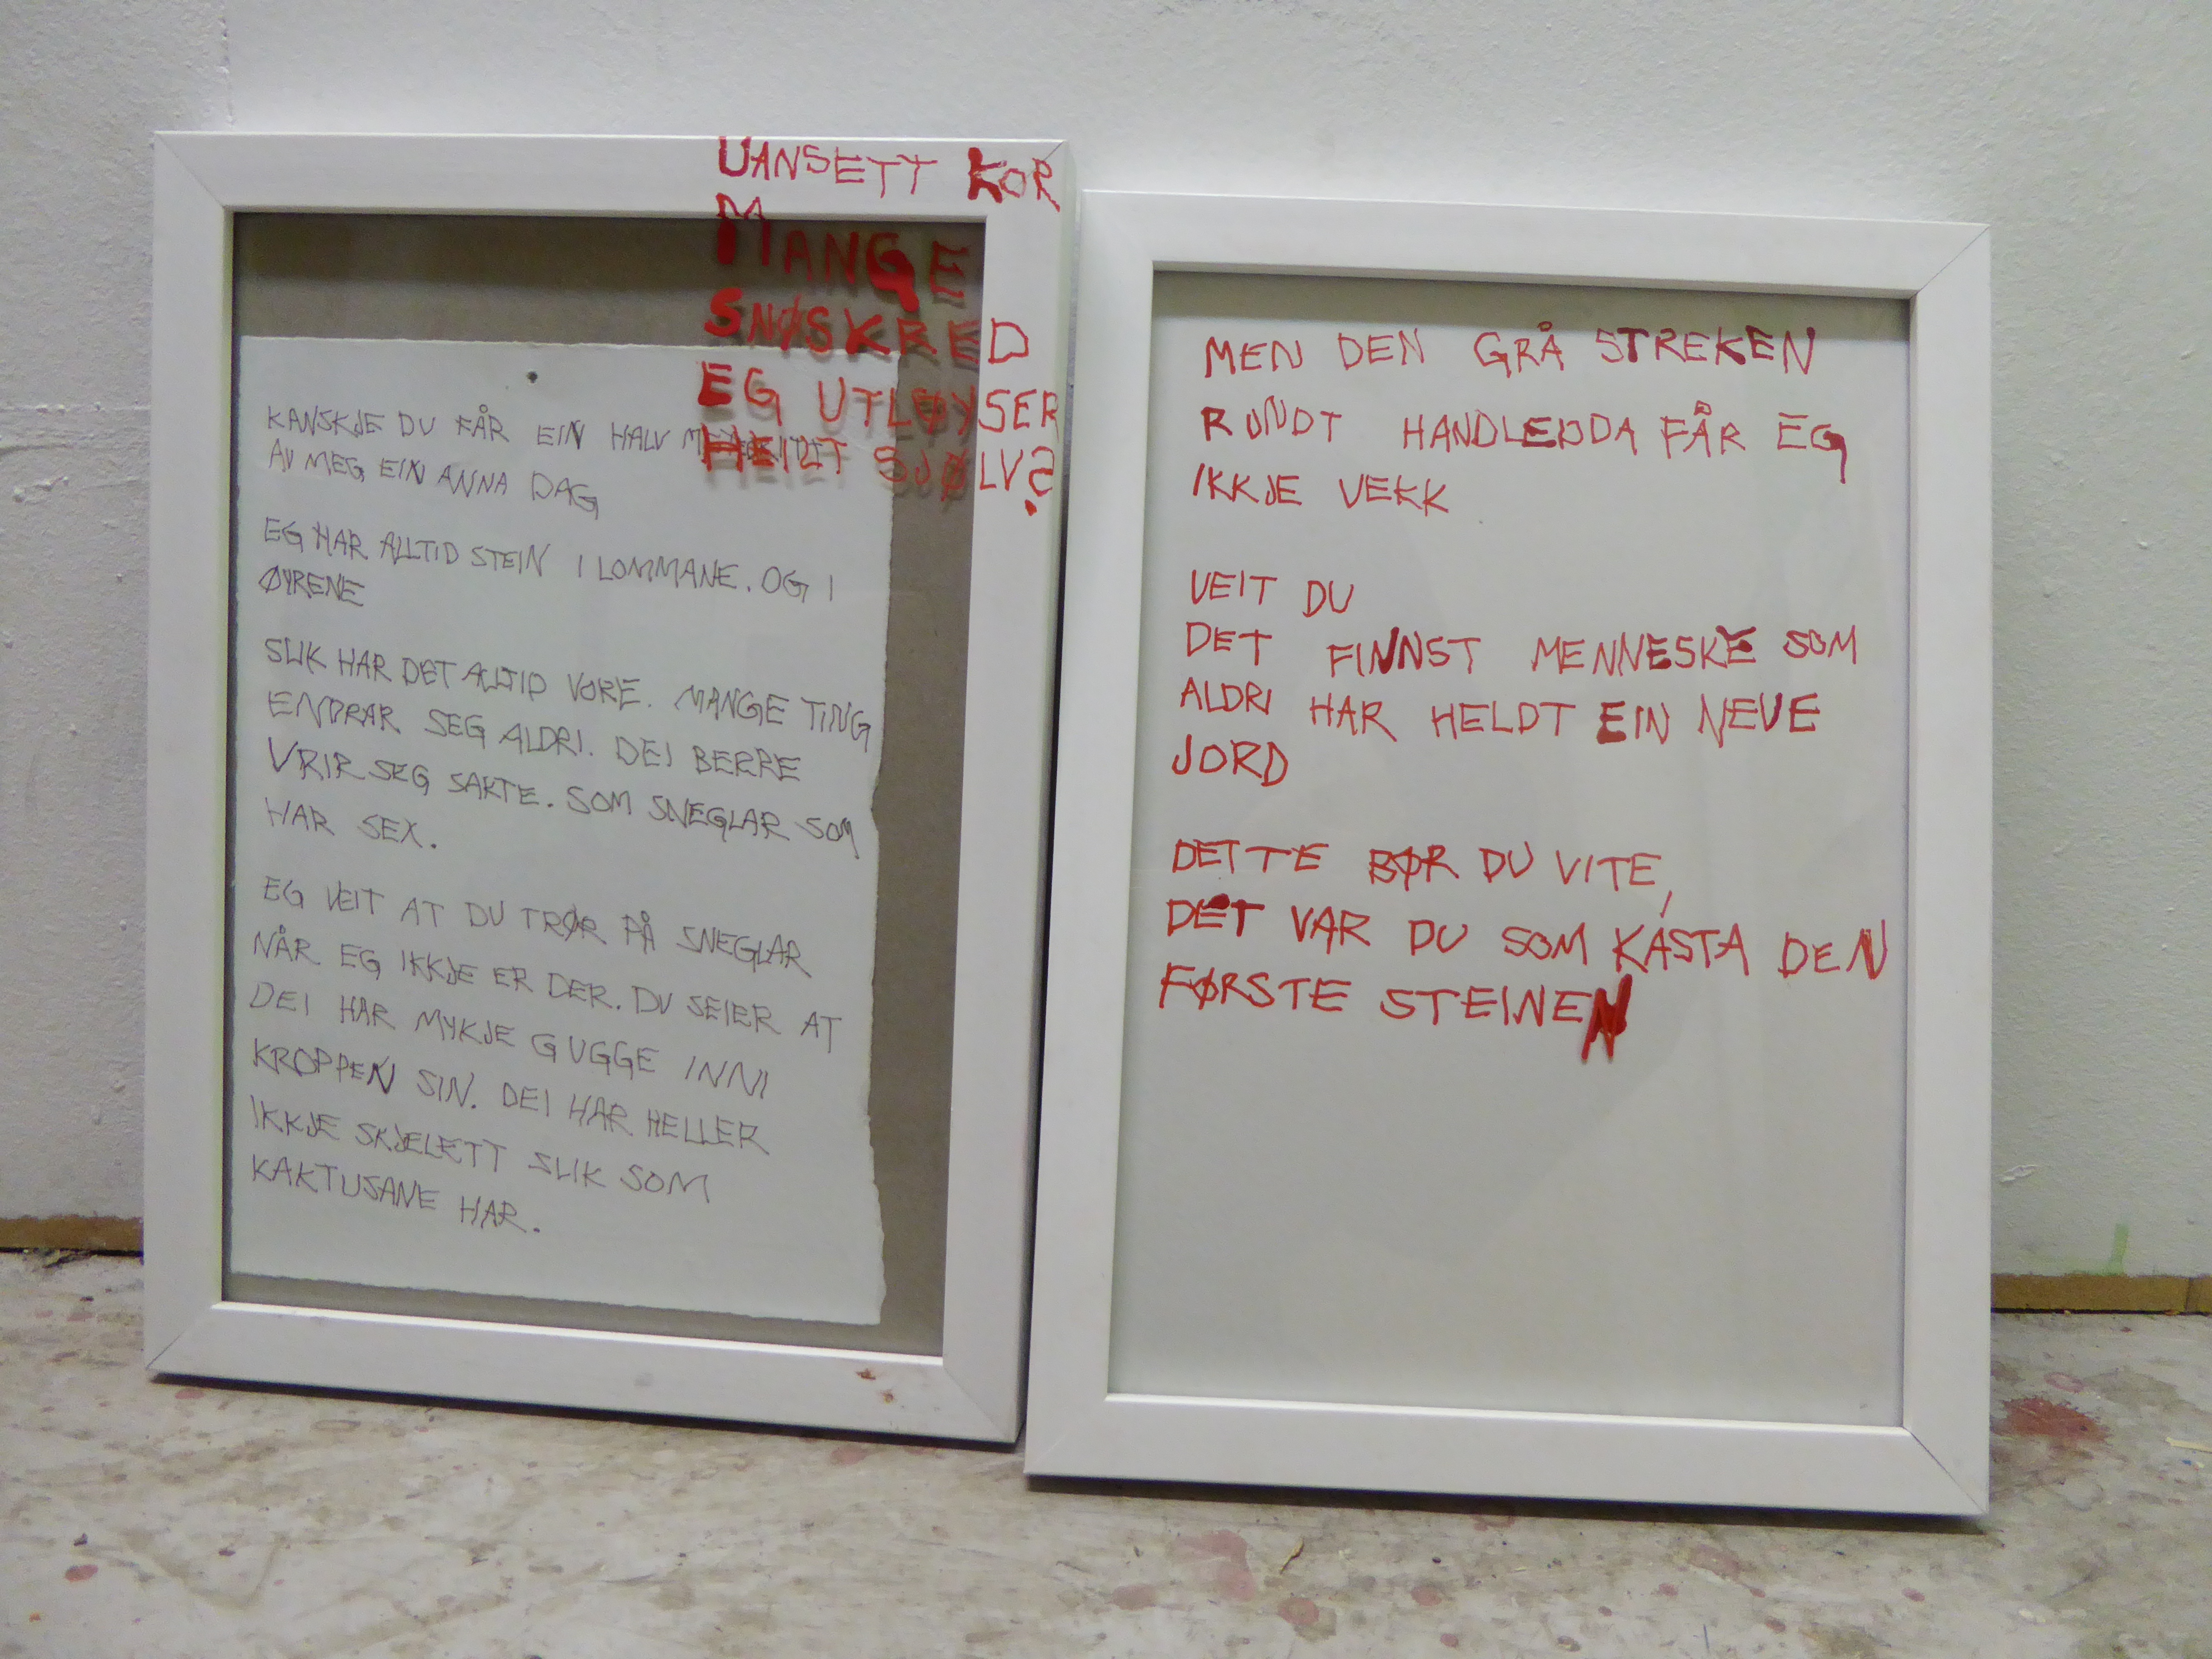 UANSETT KOR
MANGE
SNØSKRED
EG UTLØYSER
HEILT SJØLV?
KANSKJE DU FÅR EIN HALV
AV MEG EIN ANNA DAG
EG HAR ALLTID STEIN I LOMMANE. OG I
ØYRENE
SLIK HAR DET ALLTID VORE. MANGE TING
ENDRAR SEG ALDRI. DEI BERRE
VRIR SEG SAKTE. SOM SNEGLAR SOM
HAR SEX.
EG VEIT AT DU TRØR PÅ SNEGLAR
NÅR EG IKKJE ER DER. DU SEIER AT
DEI HAR MYKJE GUGGE INNI
KROPPEN SIN. DEI HAR HELLER
IKKJE SKJELETT SLIK SOM
KAKTUSANE HAR.
MEN DEN GRÅ STREKEN
RUNDT HANDLEDDA FÅR EG
IKKJE VEKK
VEIT DU
DET FINNST MENNESKE SOM
ALDRI HAR HELDT EIN NEVE
JORD
DETTE BØR DU VITE,
DET VAR DU SOM KASTA DEN
FØRSTE STEINEN